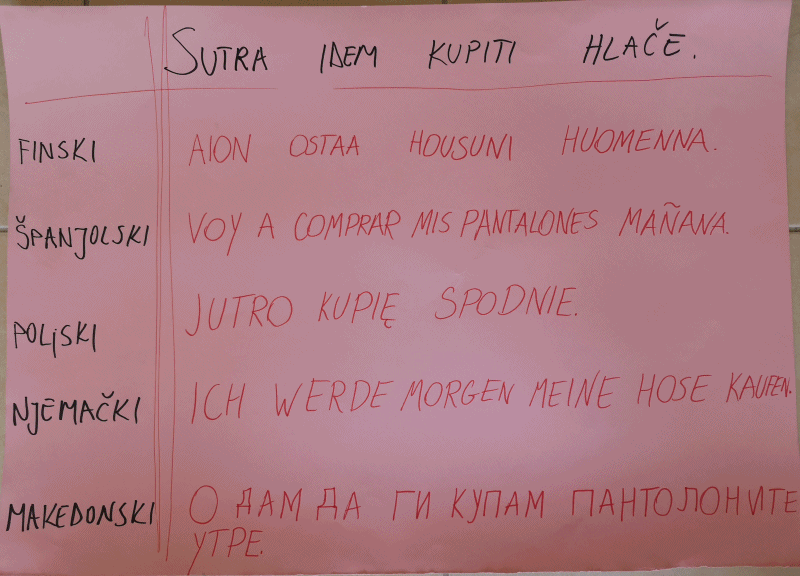 SUTRA IDEM KUPITI HLAČE.
FINSKI AION OSTAA HOUSUNI HUOMENNA.
ŠPANJOLSKI VOY A COMPRAR MIS PANTALONES MAÑANA.
POLJSKI JUTRO KUPIĘ SPODNIE.
NJEMAČKI ICH WERDE MORGEN MEINE HOSE KAUFEN.
MAKEDONSKI О ДАМ ДА ГИ КУПАМ ПАНТОЛОНИТЕ
УТРЕ.